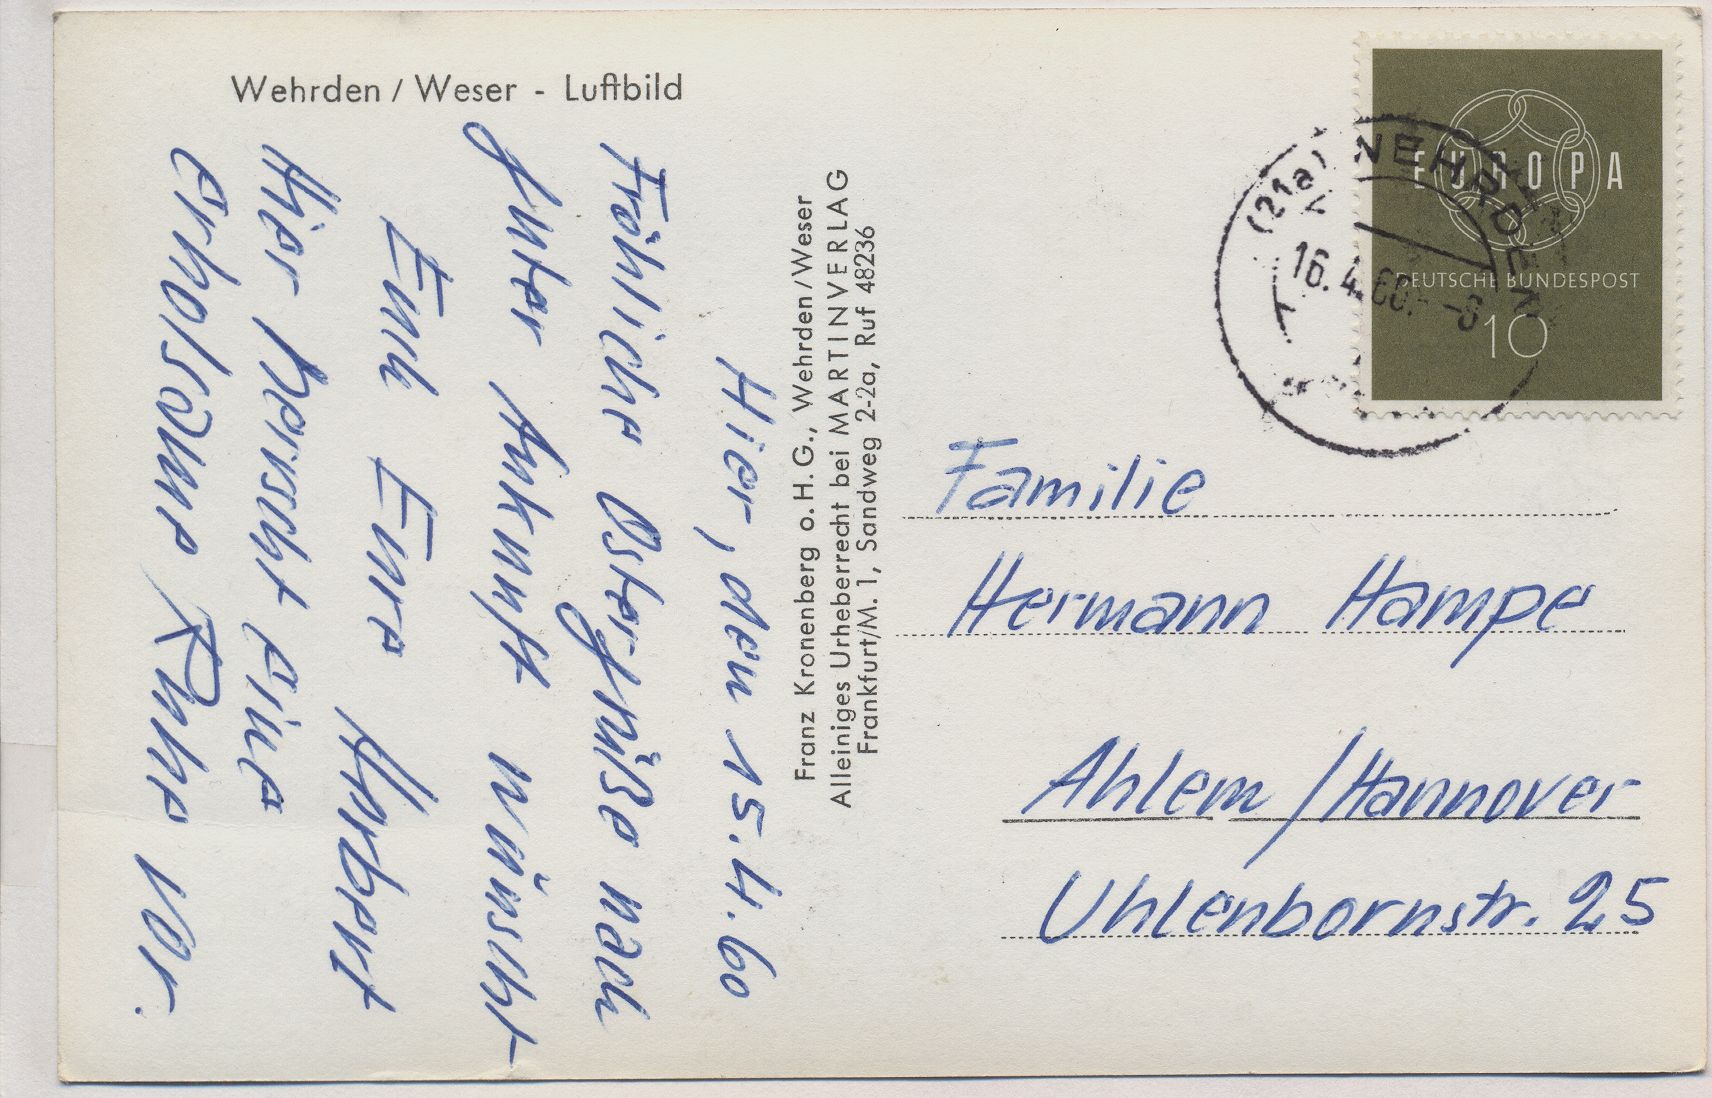 Wehrden / Weser - Luftbild
Hier, den 15.4.60
Fröhliche Ostergrüße nach
guter Ankunft wünscht
Euch Eure Herbert
Hier herscht eine
erholsame Ruhe vor.
Franz Kronenberg o. H. G., Wehrden/Weser
Alleiniges Urheberrecht bei MARTINVERLAG
Frankfurt/M. 1, Sandweg 2-2a, Ruf 48236
EUROPA
DEUTSCHE BUNDESPOST
10
(21a) WEHRDEN
16.4.60.-8
Familie
Hermann Hampe
Ahlem / Hannover
Uhlenbornstr. 25